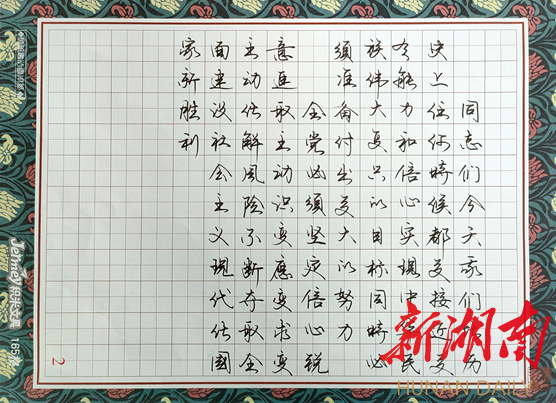 同志们今天我们比历
史上任何时候都更接近更
有能力和信心实现中华民
族伟大复兴的目标同时必
须准备付出更大的努力
全党必须坚定信心锐
意进取主动识变应变求变
主动化解风险不断夺取全
面建设社会主义现代化国
家新胜利
2
新湖南
HUNAN DAILY